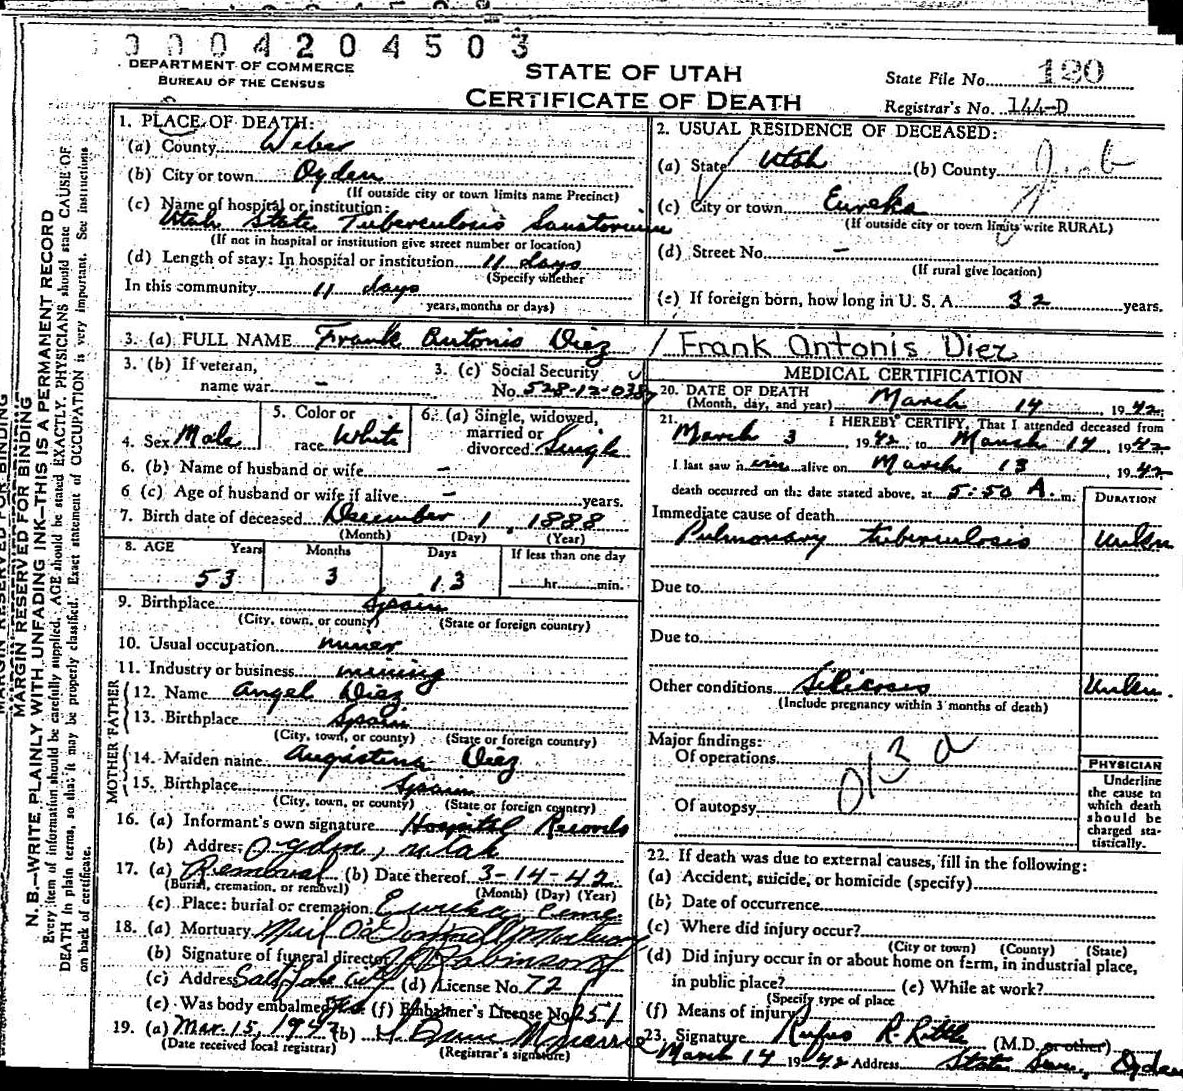 0004204503
DEPARTMENT OF COMMERCE
BUREAU OF THE CENSUS
STATE OF UTAH
CERTIFICATE OF DEATH
State File No. 120
Registrar's No. 144-D
MARGIN RESERVED FOR BINDING
N. B.—WRITE PLAINLY WITH UNFADING INK—THIS IS A PERMANENT RECORD
Every item of information should be carefully supplied. AGE should be stated EXACTLY. PHYSICIANS should state CAUSE OF
DEATH in plain terms, so that it may be properly classified. Exact statement of OCCUPATION is very important. See instructions
on back of certificate.
1. PLACE OF DEATH:
(a) County Weber
(b) City or town Ogden
(If outside city or town limits name Precinct)
(c) Name of hospital or institution:
Utah State Tuberculosis Sanatorium
(If not in hospital or institution give street number or location)
(d) Length of stay: In hospital or institution 11 days
(Specify whether
In this community 11 days
years, months or days)
2. USUAL RESIDENCE OF DECEASED:
(a) State Utah (b) County Juab
(c) City or town Eureka
(If outside city or town limits write RURAL)
(d) Street No. -
(If rural give location)
(e) If foreign born, how long in U. S. A. 32 years.
3. (a) FULL NAME Frank Antonis Diez / Frank Antonis Diez
3. (b) If veteran,
name war -
3. (c) Social Security
No. 528-12-0387
4. Sex Male
5. Color or
race White
6. (a) Single, widowed,
married or
divorced Single
6. (b) Name of husband or wife -
6 (c) Age of husband or wife if alive - years.
7. Birth date of deceased December 1, 1888
(Month) (Day) (Year)
8. AGE Years Months Days If less than one day
53 3 13 hr. min.
9. Birthplace Spain
(City, town, or county) (State or foreign country)
10. Usual occupation miner
11. Industry or business mining
FATHER
12. Name Angel Diez
13. Birthplace Spain
(City, town, or county) (State or foreign country)
MOTHER
14. Maiden name Augistina Diez
15. Birthplace Spain
(City, town, or county) (State or foreign country)
16. (a) Informant's own signature Hospital Records
(b) Address Ogden, Utah
17. (a) Removal (b) Date thereof 3-14-42
(Burial, cremation, or removal) (Month) (Day) (Year)
(c) Place: burial or cremation Eureka Cem.
18. (a) Mortuary Neil O'Donnell Mortuary
(b) Signature of funeral director Robinson
(c) Address Salt Lake City (d) License No. 72
(e) Was body embalmed Yes (f) Embalmer's License No. 251
19. (a) Mar. 15, 1942 (b)
(Date received local registrar) (Registrar's signature)
MEDICAL CERTIFICATION
20. DATE OF DEATH March 14 1942
(Month, day, and year)
21. I HEREBY CERTIFY, That I attended deceased from
March 3 1942 to March 14, 1942
I last saw him alive on March 13 1942
death occurred on the date stated above, at 5:50 A. m.
DURATION
Immediate cause of death
Pulmonary tuberculosis Unkn
Due to
Due to
Other conditions Silicosis Unkn.
(Include pregnancy within 3 months of death)
Major findings:
Of operations
013 a
Of autopsy
PHYSICIAN
Underline
the cause to
which death
should be
charged sta-
tistically.
22. If death was due to external causes, fill in the following:
(a) Accident, suicide, or homicide (specify)
(b) Date of occurrence
(c) Where did injury occur?
(City or town) (County) (State)
(d) Did injury occur in or about home on farm, in industrial place,
in public place? (e) While at work?
(Specify type of place
(f) Means of injury
23. Signature Rufus R. Little (M.D. or other)
March 14 1942 Address State San., Ogden